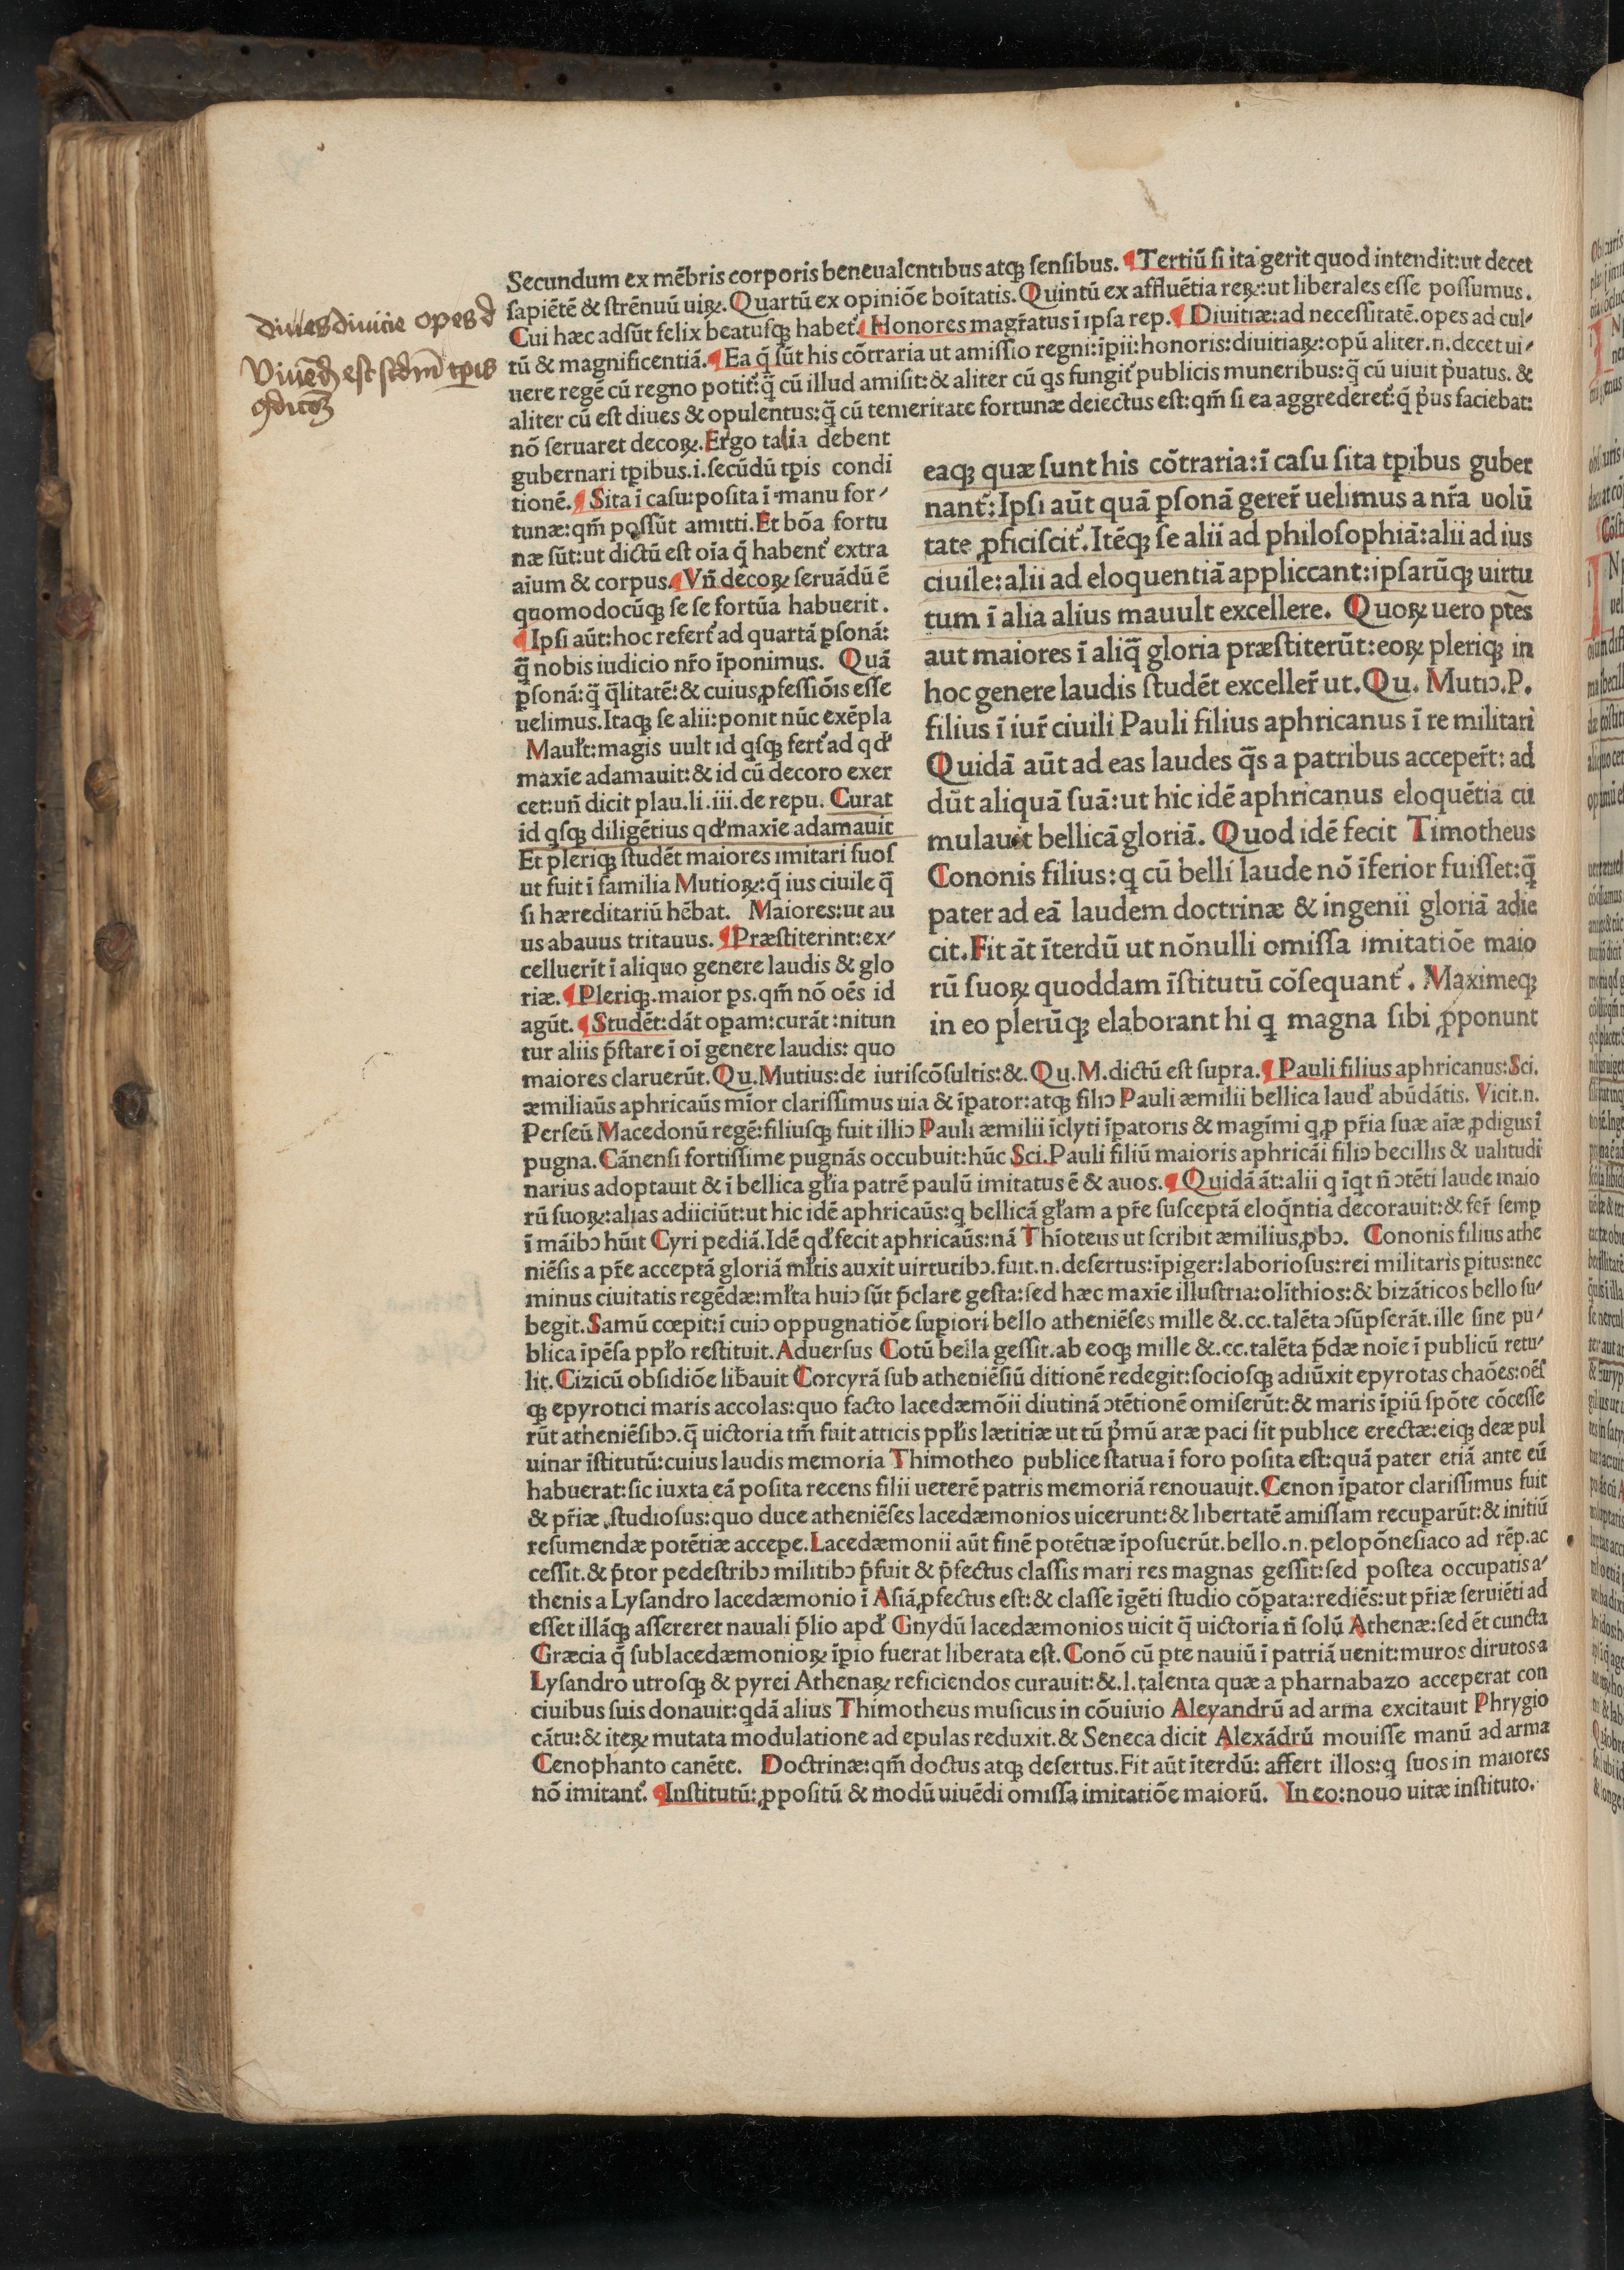 Secundum ex mēbris corporis beneualentibus atqꝫ ſenſibus. ¶Tertiū ſi ita gerit quod intendit:ut decet
ſapiētē & ſtrēnuū uiꝝ. Quartū ex opiniōe boītatis. Quintū ex affluētia reꝝ:ut liberales eſſe poſſumus.
Cui hæc adſūt felix beatuſqꝫ habet᷑. ¶Honores magr̄atus ī ipſa rep. ¶Diuitiæ:ad neceſſitatē.opes ad cul⸗
tū & magnificentiā. ¶Ea q̄ ſūt his cōtraria ut amiſſio regni:īpii:honoris:diuitiaꝝ:opū aliter.n.decet ui⸗
uere regē cū regno potit᷑:q̄ cū illud amiſit:& aliter cū qs fungit᷑ publicis muneribus:q̄ cū uiuit p̓uatus. &
aliter cū eſt diues & opulentus:q̄ cū temeritate fortunæ deiectus eſt:qm̄ ſi ea aggrederet᷑:q̄ p̓us faciebat:
nō ſeruaret decoꝝ. Ergo talia debent
gubernari tp̄ibus.i.ſecūdū tp̄is condi
tionē. ¶Sita ī caſu:poſita ī manu for⸗
tunæ:qm̄ poſſūt amitti. Et bōa fortu
næ ſūt:ut dictū eſt oīa q̄ habent᷑ extra
aīum & corpus. ¶Vn̄ decoꝝ ſeruādū ē
quomodocūqꝫ ſe ſe fortūa habuerit.
¶Ipſi aūt:hoc refert᷑ ad quartā pſonā:
q̄ nobis iudicio nr̄o īponimus. Quā
pſonā:q̄ q̄litatē:& cuius ꝓfeſſiōis eſſe
uelimus. Itaqꝫ ſe alii:ponit nūc exēpla
Mauul̄t:magis uult id qſqꝫ fert᷑ ad qd᷑
maxīe adamauit:& id cū decoro exer
cet:un̄ dicit plau.li.iii.de repu. Curat
id qſqꝫ diligētius qd᷑ maxīe adamauit
Et pleriqꝫ ſtudēt maiores imitari ſuoſ
ut fuit ī familia Mutioꝝ:q̄ ius ciuile q̄
ſi hæreditariū hēbat. Maiores:ut au
us abauus tritauus. ¶Præſtiterint:ex⸗
celluerīt ī aliquo genere laudis & glo
riæ. ¶Pleriqꝫ.maior ps.qm̄ nō oēs id
agūt. ¶Studēt:dāt opam:curāt:nitun
tur aliis p̄ſtare ī oī genere laudis: quo
eaqꝫ quæ ſunt his cōtraria:ī caſu ſita tp̄ibus guber
nant᷑:Ipſi aūt quā pſonā gerer̄ uelimus a nr̄a uolū
tate ꝓficiſcit᷑. Itēqꝫ ſe alii ad philoſophiā:alii ad ius
ciuile:alii ad eloquentiā appliccant:ipſarūqꝫ uirtu
tum ī alia alius mauult excellere. Quoꝝ uero ptēs
aut maiores ī aliq̄ gloria præſtiterūt:eoꝝ pleriqꝫ in
hoc genere laudis ſtudēt exceller̄ ut. Qu. Mutiꝰ.P.
filius ī iur̄ ciuili Pauli filius aphricanus ī re militari
Quidā aūt ad eas laudes q̄s a patribus acceper̄t: ad
dūt aliquā ſuā:ut hic idē aphricanus eloquētia cū
mulauit bellicā gloriā. Quod idē fecit Timotheus
Cononis filius:q cū belli laude nō īferior fuiſſet:q̄
pater ad eā laudem doctrinæ & ingenii gloriā adie
cit. Fit āt īterdū ut nōnulli omiſſa imitatiōe maio
rū ſuoꝝ quoddam īſtitutū cōſequant᷑. Maximeqꝫ
in eo plerūqꝫ elaborant hi q magna ſibi ꝓponunt
maiores claruerūt. Qu. Mutius:de iuriſcōſultis:&. Qu. M. dictū eſt ſupra. ¶Pauli filius aphricanus:Sci.
æmiliaūs aphricaūs mīor clariſſimus uia & īpator:atqꝫ filiꝰ Pauli æmilii bellica laud᷑ abūdātis. Vicit.n.
Perſeū Macedonū regē:filiuſqꝫ fuit illiꝰ Pauli æmilii īclyti īpatoris & magīmi q ꝓ pr̄ia ſuæ aīæ ꝓdigus ī
pugna. Cānenſi fortiſſime pugnās occubuit:hūc Sci. Pauli filiū maioris aphricāi filiꝰ becillis & ualitudi
narius adoptauit & ī bellica gl̄ia patrē paulū imitatus ē & auos. ¶Quidā āt:alii q īqt n̄ ꝯtēti laude maio
rū ſuoꝝ:alias adiiciūt:ut hic idē aphricaūs:q bellicā gl̄am a pr̄e ſuſceptā eloq̄ntia decorauit:& fer̄ ſemp
ī māibꝰ hūit Cyri pediā. Idē qd᷑ fecit aphricaūs:nā Thīoteus ut ſcribit æmilius ꝓbꝰ. Cononis filius athe
niēſis a pr̄e acceptā gloriā ml̄tis auxit uirtutibꝰ.fuit.n.deſertus:īpiger:laborioſus:rei militaris pitus:nec
minus ciuitatis regēdæ:ml̄ta huiꝰ ſūt p̄clare geſta:ſed hæc maxīe illuſtria:olīthios:& bizāticos bello ſu⸗
begit. Samū cœpit:ī cuiꝰ oppugnatiōe ſupiori bello atheniēſes mille &.cc.talēta ꝯſūpſerāt.ille ſine pu⸗
blica īpēſa ppl̄o reſtituit. Aduerſus Cotū bella geſſit.ab eoqꝫ mille &.cc.talēta p̄dæ noīe ī publicū retu⸗
lit. Cizicū obſidiōe lib̄auit Corcyrā ſub atheniēſiū ditionē redegit:ſocioſqꝫ adiūxit epyrotas chaōes:oēſ
qꝫ epyrotici maris accolas:quo facto lacedæmōii diutinā ꝯtētionē omiſerūt:& maris īpiū ſpōte cōceſſe
rūt atheniēſibꝰ.q̄ uictoria tm̄ fuit atticis ppl̄is lætitiæ ut tū p̓mū aræ paci ſit publice erectæ:eiqꝫ deæ pul
uinar īſtitutū:cuius laudis memoria Thimotheo publice ſtatua ī foro poſita eſt:quā pater etiā ante eū
habuerat:ſic iuxta eā poſita recens filii ueterē patris memoriā renouauit. Cenon īpator clariſſimus fuit
& pr̄iæ ſtudioſus:quo duce atheniēſes lacedæmonios uicerunt:& libertatē amiſſam recuparūt:& initiū
reſumendæ potētiæ accepe. Lacedæmonii aūt finē potētiæ īpoſuerūt.bello.n.pelopōneſiaco ad rēp.ac
ceſſit.& p̄tor pedeſtribꝰ militibꝰ p̄fuit & p̄fectus claſſis mari res magnas geſſit:ſed poſtea occupatis a⸗
thenis a Lyſandro lacedæmonio ī Aſiā ꝓfectus eſt:& claſſe īgēti ſtudio cōpata:rediēs:ut pr̄iæ ſeruiēti ad
eſſet illāqꝫ aſſereret nauali p̄lio apd᷑ Gnydū lacedæmonios uicit q̄ uictoria n̄ ſolū Athenæ:ſed ēt cuncta
Græcia q̄ ſublacedæmonioꝝ īpio fuerat liberata eſt. Conō cū pte nauiū ī patriā uenit:muros dirutos a
Lyſandro utroſqꝫ & pyrei Athenaꝝ reficiendos curauit:&.l.talenta quæ a pharnabazo acceperat con
ciuibus ſuis donauit:qdā alius Thimotheus muſicus in cōuiuio Aleyandrū ad arma excitauit Phrygio
cātu:& iteꝝ mutata modulatione ad epulas reduxit.& Seneca dicit Alexādrū mouiſſe manū ad arma
Cenophanto canēte. Doctrinæ:qm̄ doctus atqꝫ deſertus. Fit aūt īterdū: affert illos:q ſuos in maiores
nō imitant᷑. ¶Inſtitutū:ꝓpoſitū & modū uiuēdi omiſſa imitatiōe maiorū. In eo:nouo uitæ inſtituto.
diues diuicie opes
Viuēdū est scdm̄ tp̄is
ꝯditōꝫ